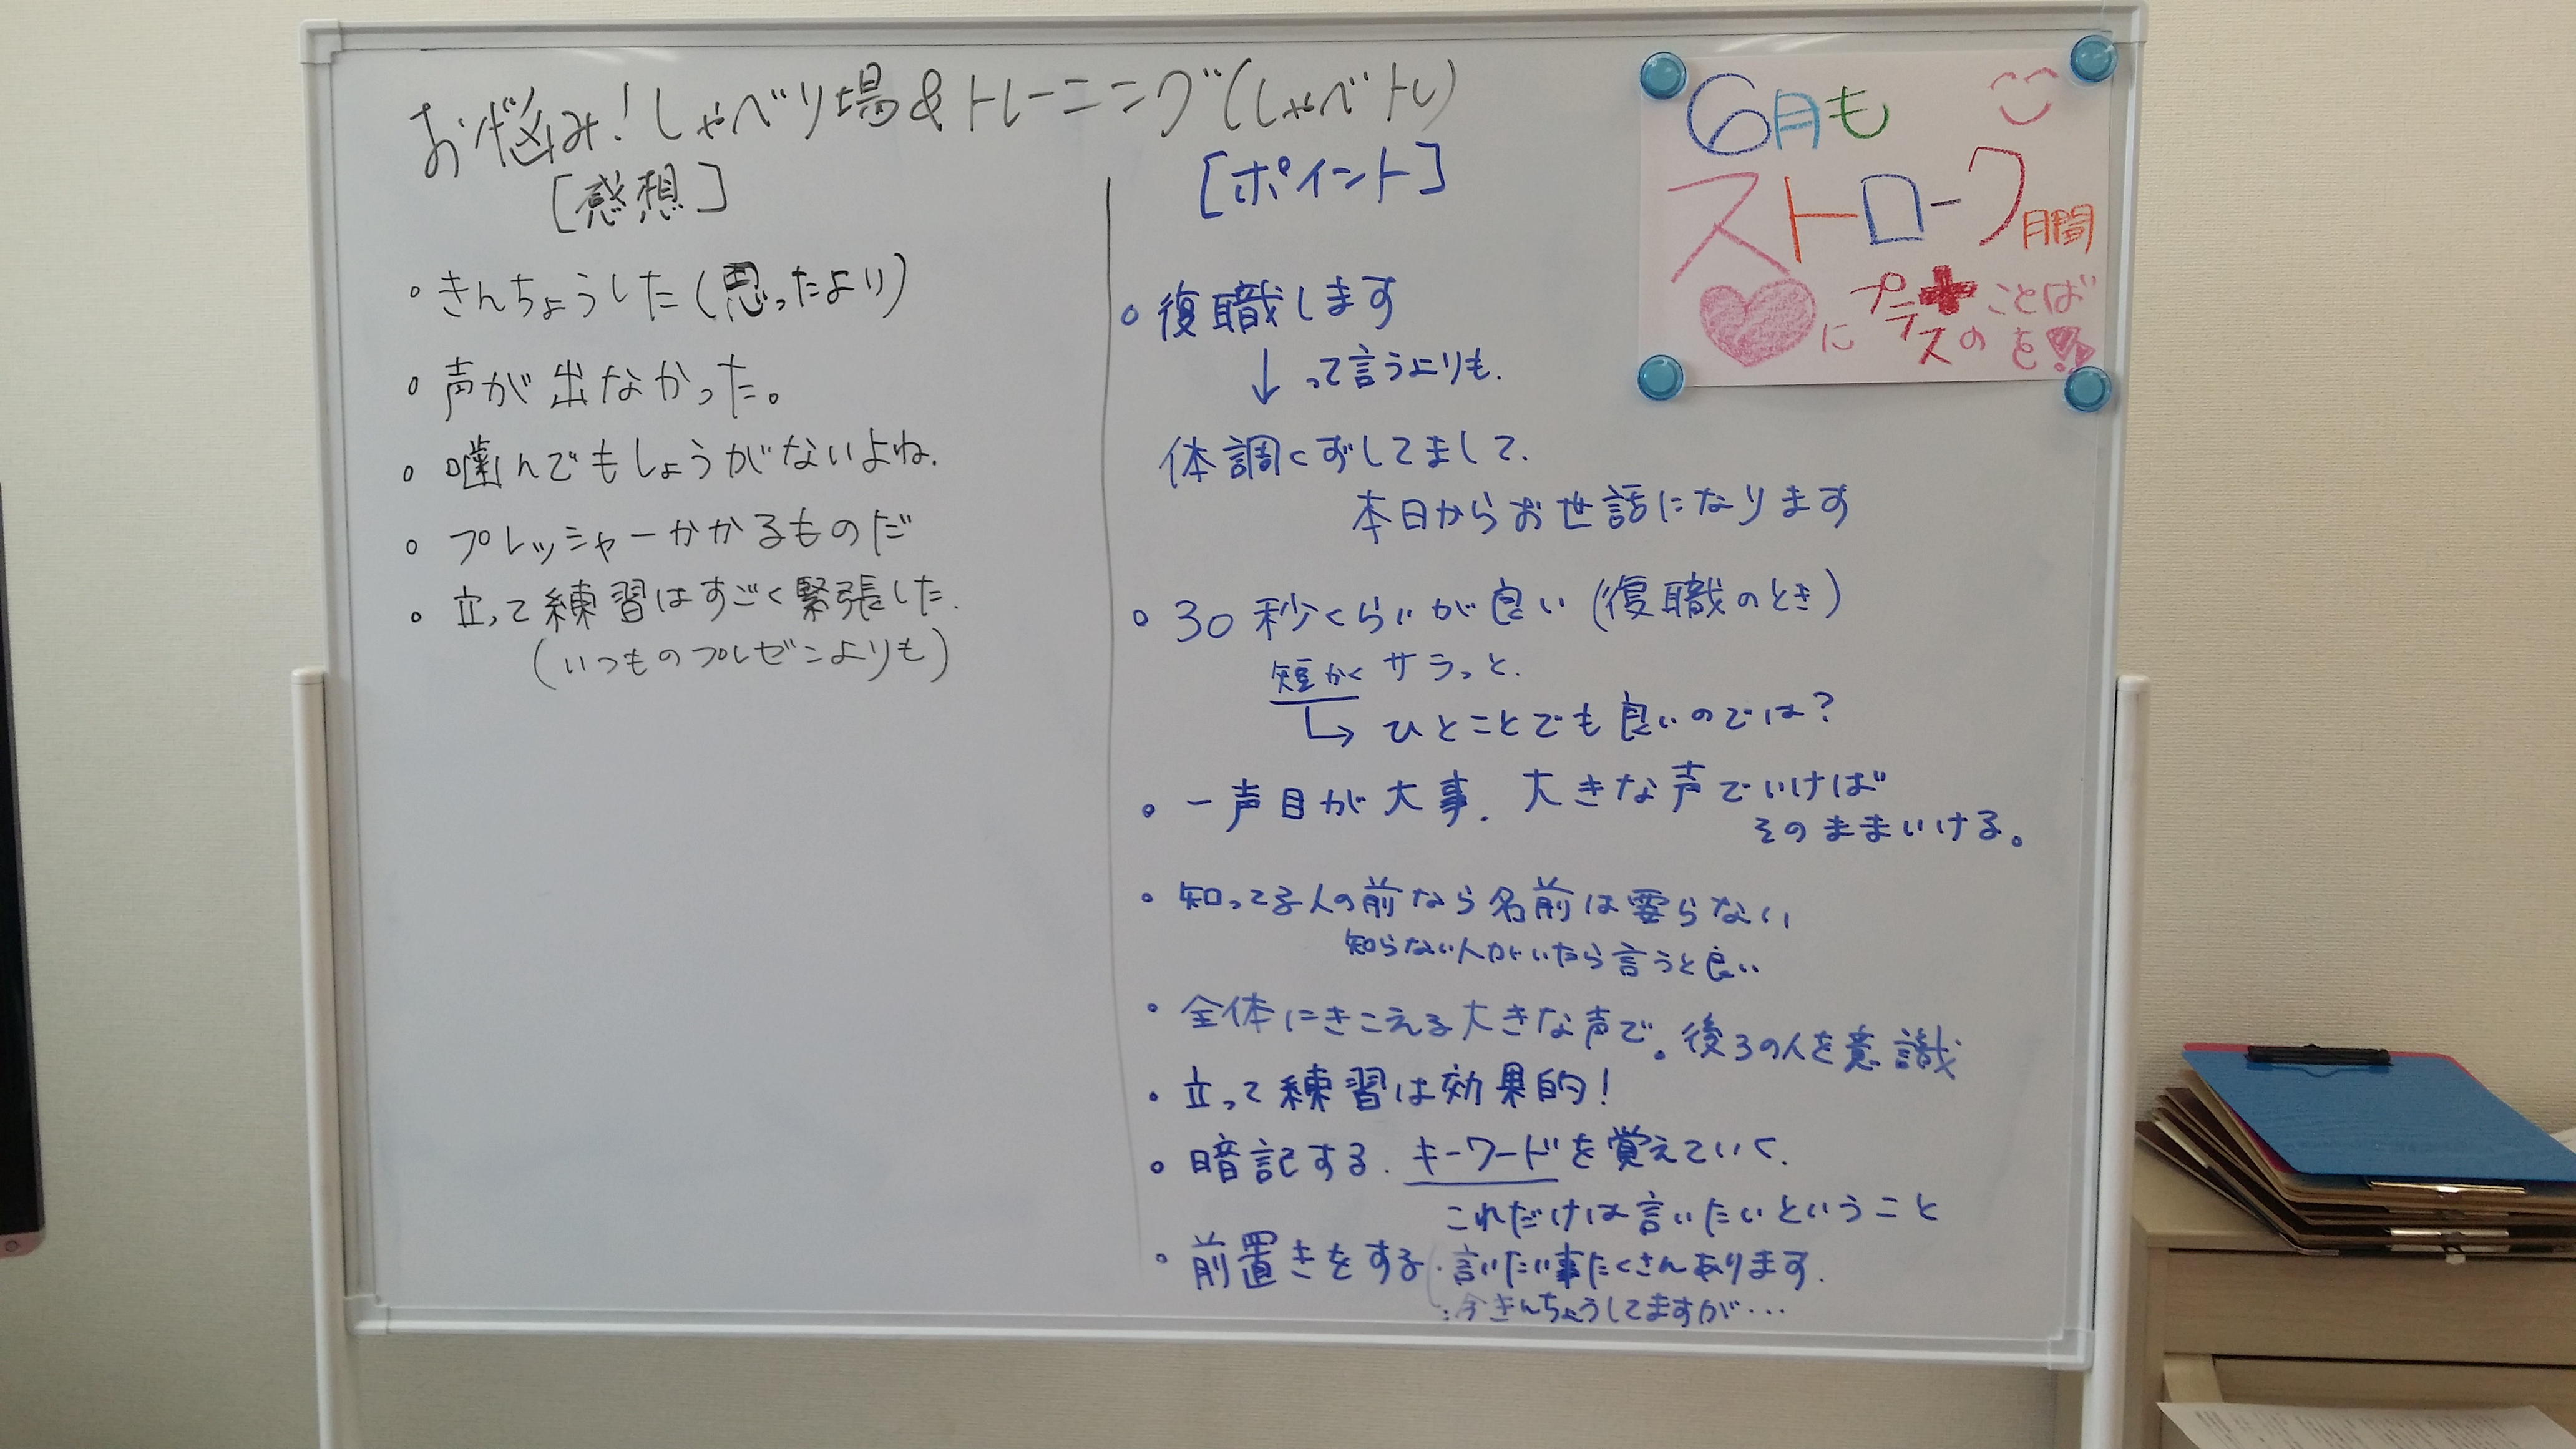 お悩み!しゃべり場&トレーニング(しゃべトレ)
[感想]
・きんちょうした(思ったより)
・声が出なかった。
・噛んでもしょうがないよね.
・プレッシャーかかるものだ
・立って練習はすごく緊張した.
(いつものプレゼンよりも)
[ポイント]
・復職します
↓って言うよりも.
体調くずしてまして.
本日からお世話になります
・30秒くらいが良い(復職のとき)
短かく サラっと.
↳ひとことでも良いのでは?
・一声目が大事. 大きな声でいければ
そのままいける。
・知ってる人の前なら名前は要らない
知らない人がいたら言うと良い
・全体にきこえる大きな声で。後ろの人を意識
・立って練習は効果的!
・暗記する. キーワードを覚えていく.
これだけは言いたいということ
・前置きをする ・言いたい事たくさんあります.
・今きんちょうしてますが…
6月も
ストローク月間
♥にプラス+の ことばを!